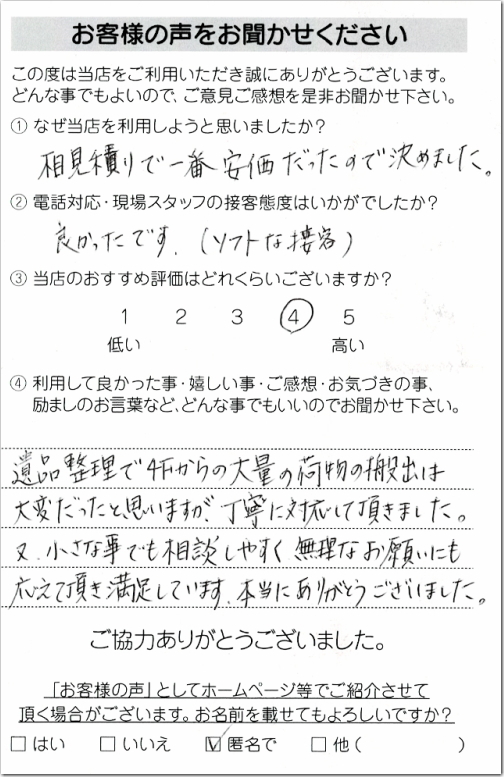 お客様の声をお聞かせください
この度は当店をご利用いただき誠にありがとうございます。
どんな事でもよいので、ご意見ご感想を是非お聞かせ下さい。
① なぜ当店を利用しようと思いましたか？
相見積りで一番安価だったので決めました。
② 電話対応・現場スタッフの接客態度はいかがでしたか？
良かったです。（ソフトな接客）
③ 当店のおすすめ評価はどれくらいございますか？
1 2 3 ④ 5
低い 高い
④ 利用して良かった事・嬉しい事・ご感想・お気づきの事、
励ましのお言葉など、どんな事でもいいのでお聞かせ下さい。
遺品整理で4Fからの大量の荷物の搬出は
大変だったと思いますが、丁寧に対応して頂きました。
又、小さな事でも相談しやすく無理なお願いにも
応えて頂き満足しています。本当にありがとうございました。
ご協力ありがとうございました。
「お客様の声」としてホームページ等でご紹介させて
頂く場合がございます。お名前を載せてもよろしいですか？
□ はい □ いいえ ☑ 匿名で □ 他（ ）